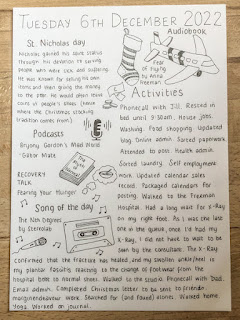 TUESDAY 6TH DECEMBER 2022
St. Nicholas day
Nicholas gained his saint status
through his devotion to serving
people who were sick and suffering.
He was known for selling his own
items and then giving the money
to the poor. He would often leave
coins in people's shoes (hence
where the Christmas stocking
tradition comes from).
Audiobook
Fear
of Flying
by Anna
Freeman
Podcasts
Bryony Gordon's Mad World
Gator Mate
RECOVERY
TALK
Fearing Your Hunger
Song of the day
The Nth Degrees
by Stereolab
Activities
Phonecall with Jill. Rested in
bed until 9:30am. House jobs.
Washing. Food shopping. Updated
blog. Online admin. Sorted paperwork.
Attended to post. Health admin.
Sorted laundry. Self employment
work. Updated calendar sales
record. Packaged calendars for
posting. Walked to the Freeman
Hospital. Had a long wait for X-Ray
on my right foot. As I was the last
one in the queue, once I'd had my
X-Ray, I did not have to wait to be
seen by the consultant. The X-Ray
confirmed that the fracture has healed, and my swollen ankle/heel is
my plantar fasciitis reacting to the change of footwear from the
hospital boot to normal shoes. Walked to the studio. Phonecall with Dad.
Email admin. Completed Christmas letter to be sent to friends
Searched for (and found) slones. Walked home
Yoga. Worked on journal.